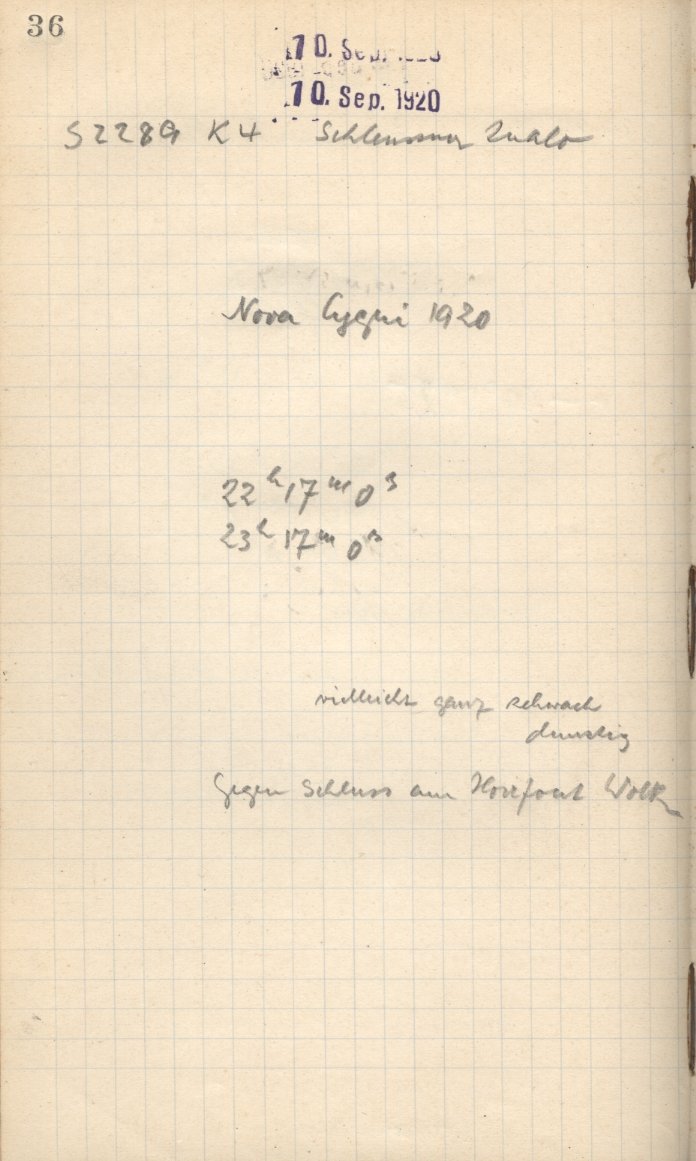 36
10. Sep. 1920
10. Sep. 1920
S2289 K4 Schleussner
Nova Cygni 1920
22ʰ 17ᵐ 0ˢ
23ʰ 17ᵐ 0ˢ
vielleicht ganz schwach
dunstig
Gegen Schluss am Horizont Wolken